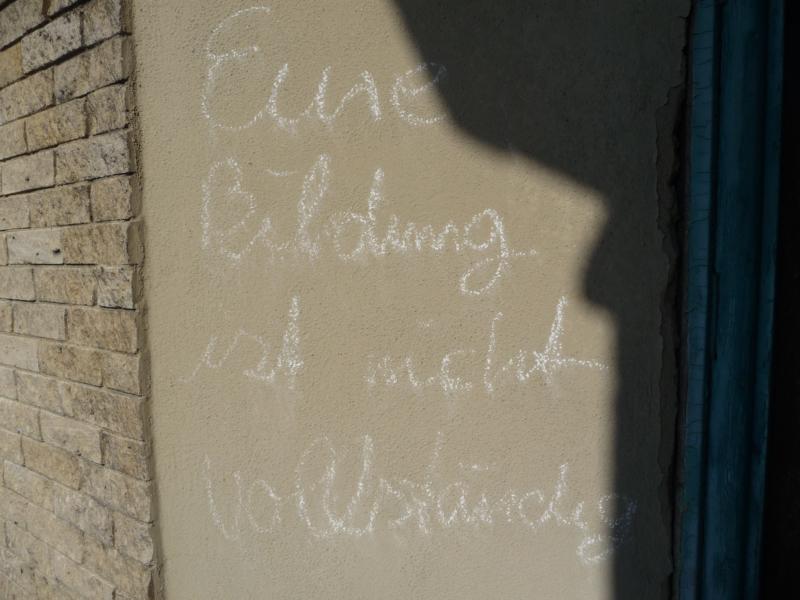 Eine
Bildung
ist nicht
vollständig